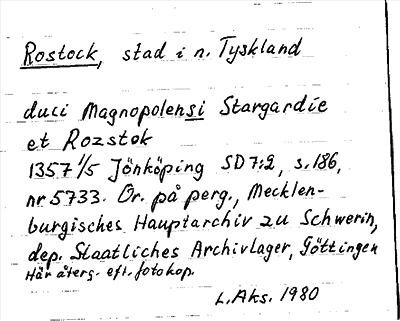 Rostock, stad i n. Tyskland
duci Magnopolensi Stargardie
et Rozstok
1357 1/5 Jönköping SD 7:2, s. 186,
nr 5733. Or. på perg., Mecklen-
burgisches Hauptarchiv zu Schwerin,
dep. Staatliches Archivlager, Göttingen
Här återg. eft. fotokop.
L. Aks. 1980